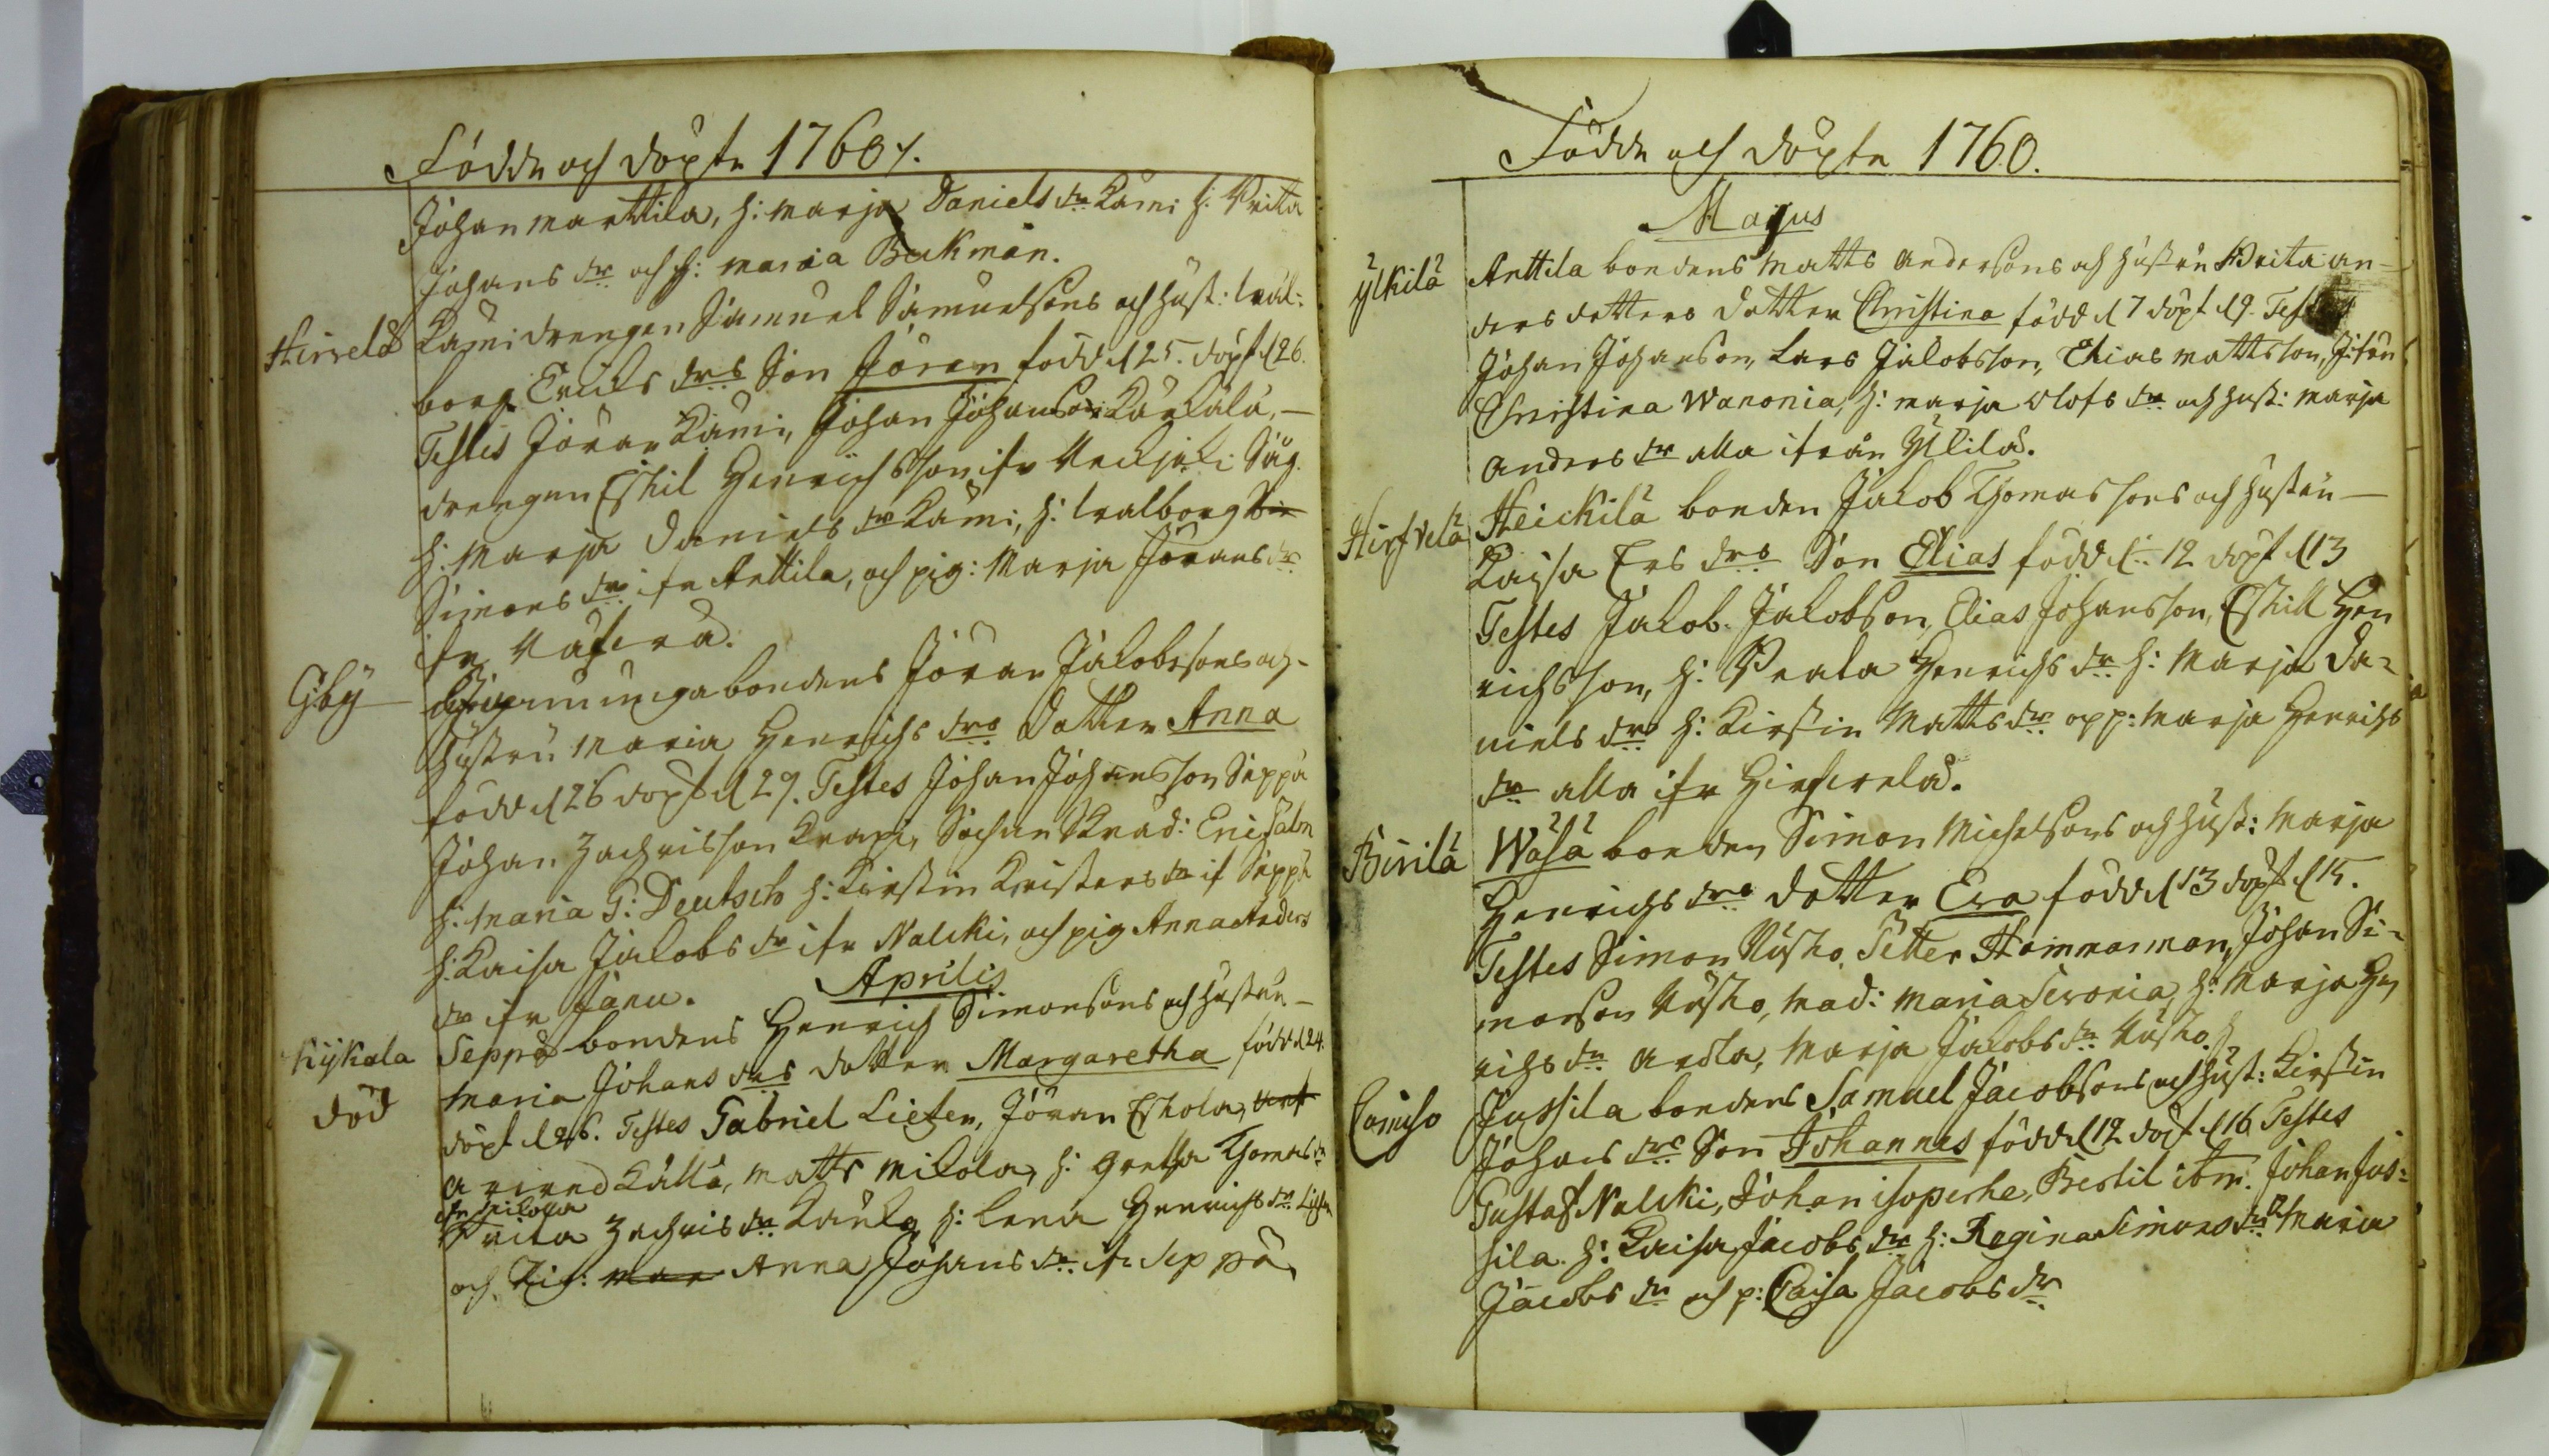 Födde och döpte 1760.
Johan Marttila, h: Marja Daniels dr Kämi h: Brita
Johans dr och h: Maria Beckman.
Hirvelä Kämi drengen Samuel Samuelsons och hust: Wal-
borg Erichs drs Son Jöran född d 25. döpt d 26.
Testes Jöran Kämi, Johan Johanson Karkala,
drengen Eskil Henrichsson ifr Säg.
h: Marja Daniels dr Kämi, h: Walborg
Simons dr ifr Anttila, och pig: Marja Jörans dr
ifr
Gby bondens Jöran Jakobsons och
Hustru Maria Henrichs drs Dotter Anna
född d 26 döpt d 29. Testes Johan Johansson Seppä
Johan Zachrisson Krapi, Sochne Skräd: Eric
h: Maria G: Deutsch h: Kirstin Kristers dr if Seppä
h: Kaisa Jakobs dr ifr Nalcki, och pig Anna Anders
dr ifr Jänu.
Aprilis
Kÿkala Seppä bondens Henrich Simonsons och Hustru
död Maria Johans drs dotter Margaretha född d 24.
döpt d 26. Testes Gabriel Lieten, Jöran Eskola,
Källä, Matts Mikola, h: Gretha Thomas dr
ifr Mikola
Brita Zachris dr Kaula h: Lena Henrichs dr
och Pig: Anna Johans dr ifr Seppä
Födde och döpte 1760.
Majus
Ylkilä Anttila bondens Matts Andersons och Hustru Brita An-
ders dotters dotter Christina född d 7 döpt d 9. Testes
Johan Johanson, Lars Jakobsson, Elias Mattsson, Jfrun
Christina Wanonia, h: Marja Olofs dr och hust: Marja
Anders dr alla ifrån Ylkilä.
Hirfvelä Heickilä bonden Jakob Thomassons och Hustru
Kaisa Ers drs Son Elias född d 12 döpt d 13
Testes Jakob Jakobson, Elias Johansson, Eskill Hen
richsson, h: Beata Henrichs dr h: Marja Da-
niels dr h: Kirstin Matts dr o p: Marja Henrichs
dr alla ifr Hirfvelä.
Birilä Wäsä bonden Simon Michelsons och Hust: Marja
Henrichs drs dotter Eva född d 13 döpt d 15.
Testes Simon Wäsko, Petter Hammarman, Johan Si-
monson Wäsko, Mad: Maria Sevonia, h: Marja Hen
richs dr Ardla, Marja Jakobs dr Wäsko.
Jussila bondens Samuel Jacobsons och hust: Kirstin
Johans drs Son Johannes född d 12 döpt d 16 Testes
Gustaf Nalcki, Johan isoperhe, Bertil ibm. Johan Jus-
sila. h: Kaisa Jacobs dr h: Regina Simons dr Maria
Jacobs dr och p: Caisa Jacobs dr